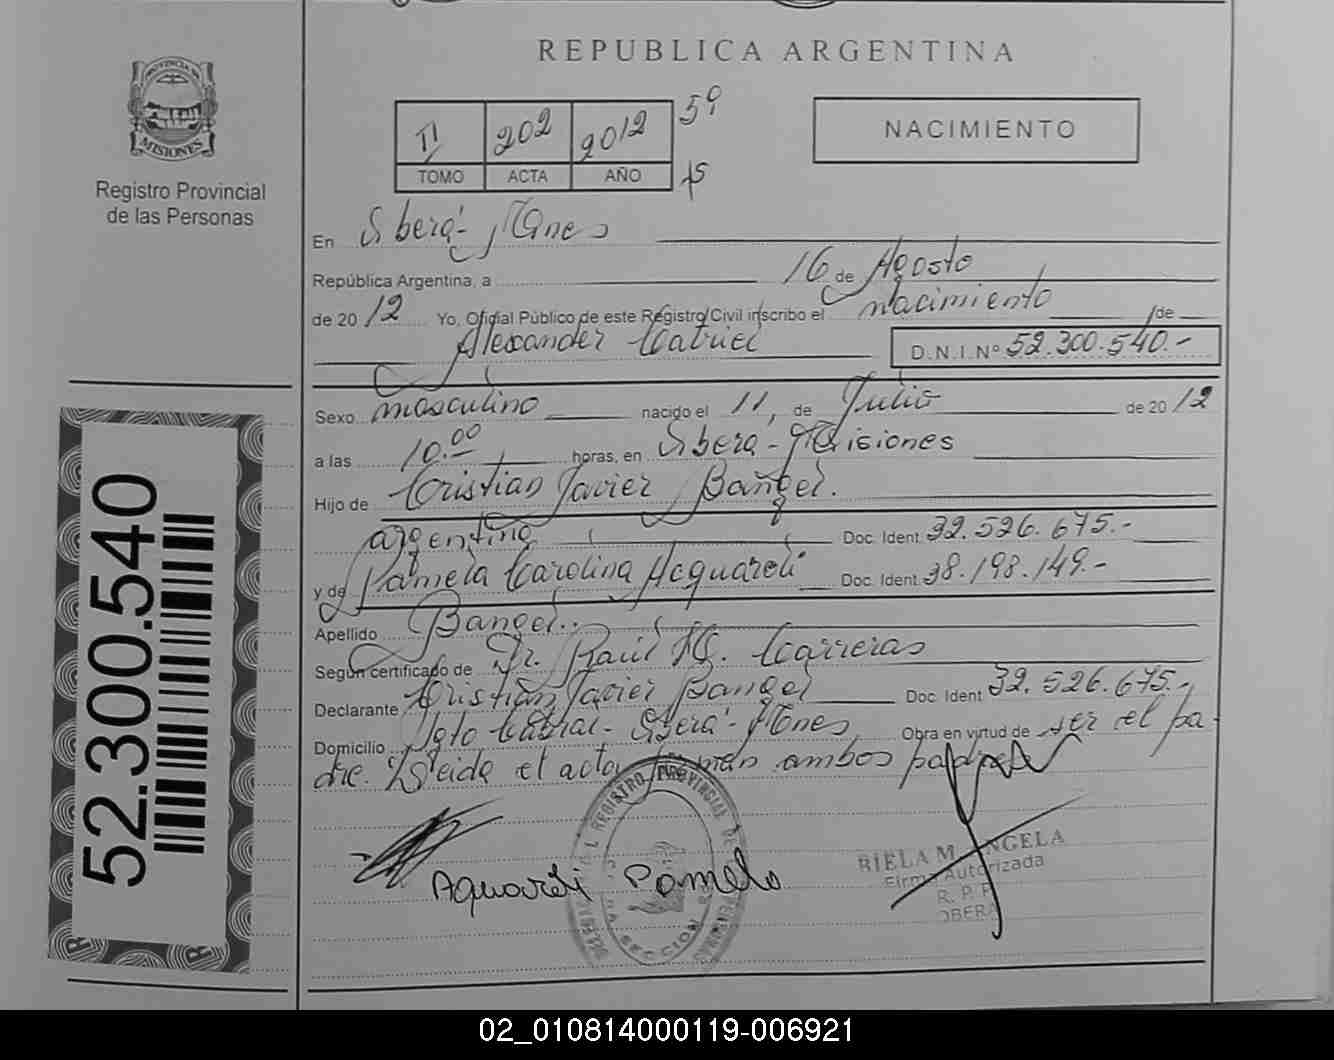 REPUBLICA ARGENTINA
PROVINCIA DE
MISIONES
Registro Provincial
de las Personas
II 202 2012 5º
TOMO ACTA AÑO
NACIMIENTO
En Oberá - Mnes
República Argentina, a 16 de Agosto
de 20 12 Yo, Oficial Público de este Registro Civil inscribo el nacimiento de
Alexander Gabriel D.N.I.Nº 52.300.540.-
Sexo masculino nacido el 11, de Julio de 20 12
a las 10.00 horas, en Oberá - Misiones
Hijo de Cristian Javier Bangel.
argentino Doc. Ident. 32.526.675.-
y de Pamela Carolina Acquareli Doc. Ident. 38.198.149.-
Apellido Bangel.
Según certificado de Dr. Raúl Carreras
Declarante Cristian Javier Bangel Doc. Ident 32.526.675.-
Domicilio Sgto Cabral - Oberá - Mnes, Obra en virtud de ser el pa-
dre. Leida el acta, firman ambos padres
REGISTRO PROVINCIAL DE LAS PERSONAS
SECCION
Aquareli Pamela
RIELA M. ANGELA
Firma Autorizada
R. P. P.
OBERA
52.300.540
02_010814000119-006921